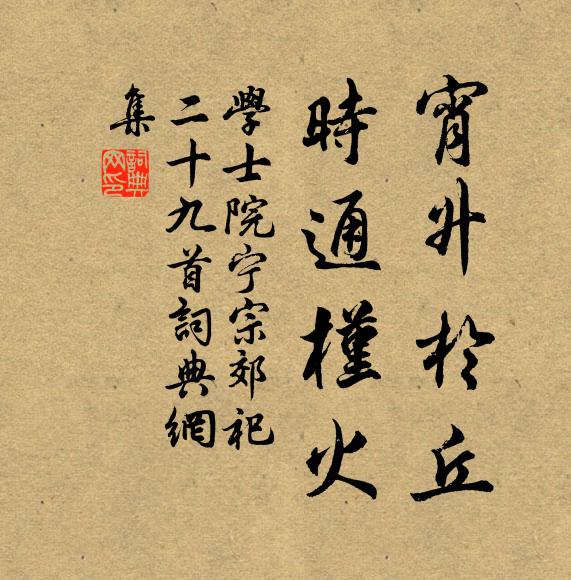 宵升於丘
時通權火
學士院宁宗郊祀
二十九首詞典網
集
詞典
網印